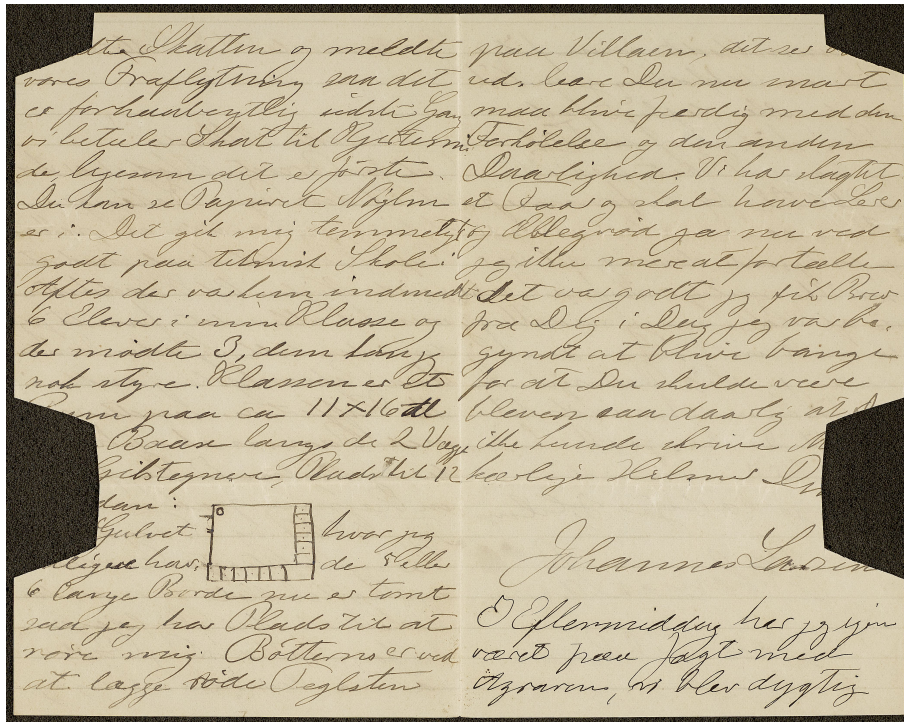 Skatten og meldte
vores Fraflytning saa det
er forhaabentlig sidste Gang
vi betaler Skat til Kjertemin
de ligesom det er første.
Du kan se Papiret Nøglen
er i. Det gik mig temmelig
godt paa teknisk Skole i
Aftes der var kun indmeldt
6 Elever i min Klasse og
der mødte 3, dem kan jeg
nok styre. Klassen er et
Rum paa ca 11×16 al
Baase langs de 2 Vægge
Gibstegnere, Plads til 12
dan:
Gulvet hvor jeg
har de 5 eller
6 lange Borde nu er tomt
saa jeg har Plads til at
røre mig. Bøtterns er ved
at lægge røde Teglsten
paa Villaen. det ser
ud. bare Du nu snart
maa blive færdig med den
Forkølelse og den anden
Daarlighed. Vi har slagtet
et Faar og skal have Lever
og Æblegrød ja nu ved
jeg ikke mere at fortælle
Det var godt jeg fik Brev
fra Dig i Dag jeg var be-
gyndt at blive bange
for at Du skulde være
bleven saa daarlig at
ikke kunde skrive
kærlige Hilsner Din
Johannes Larsen
I Eftermiddag har jeg igen
været paa Jagt med
Agraren, vi blev dygtig